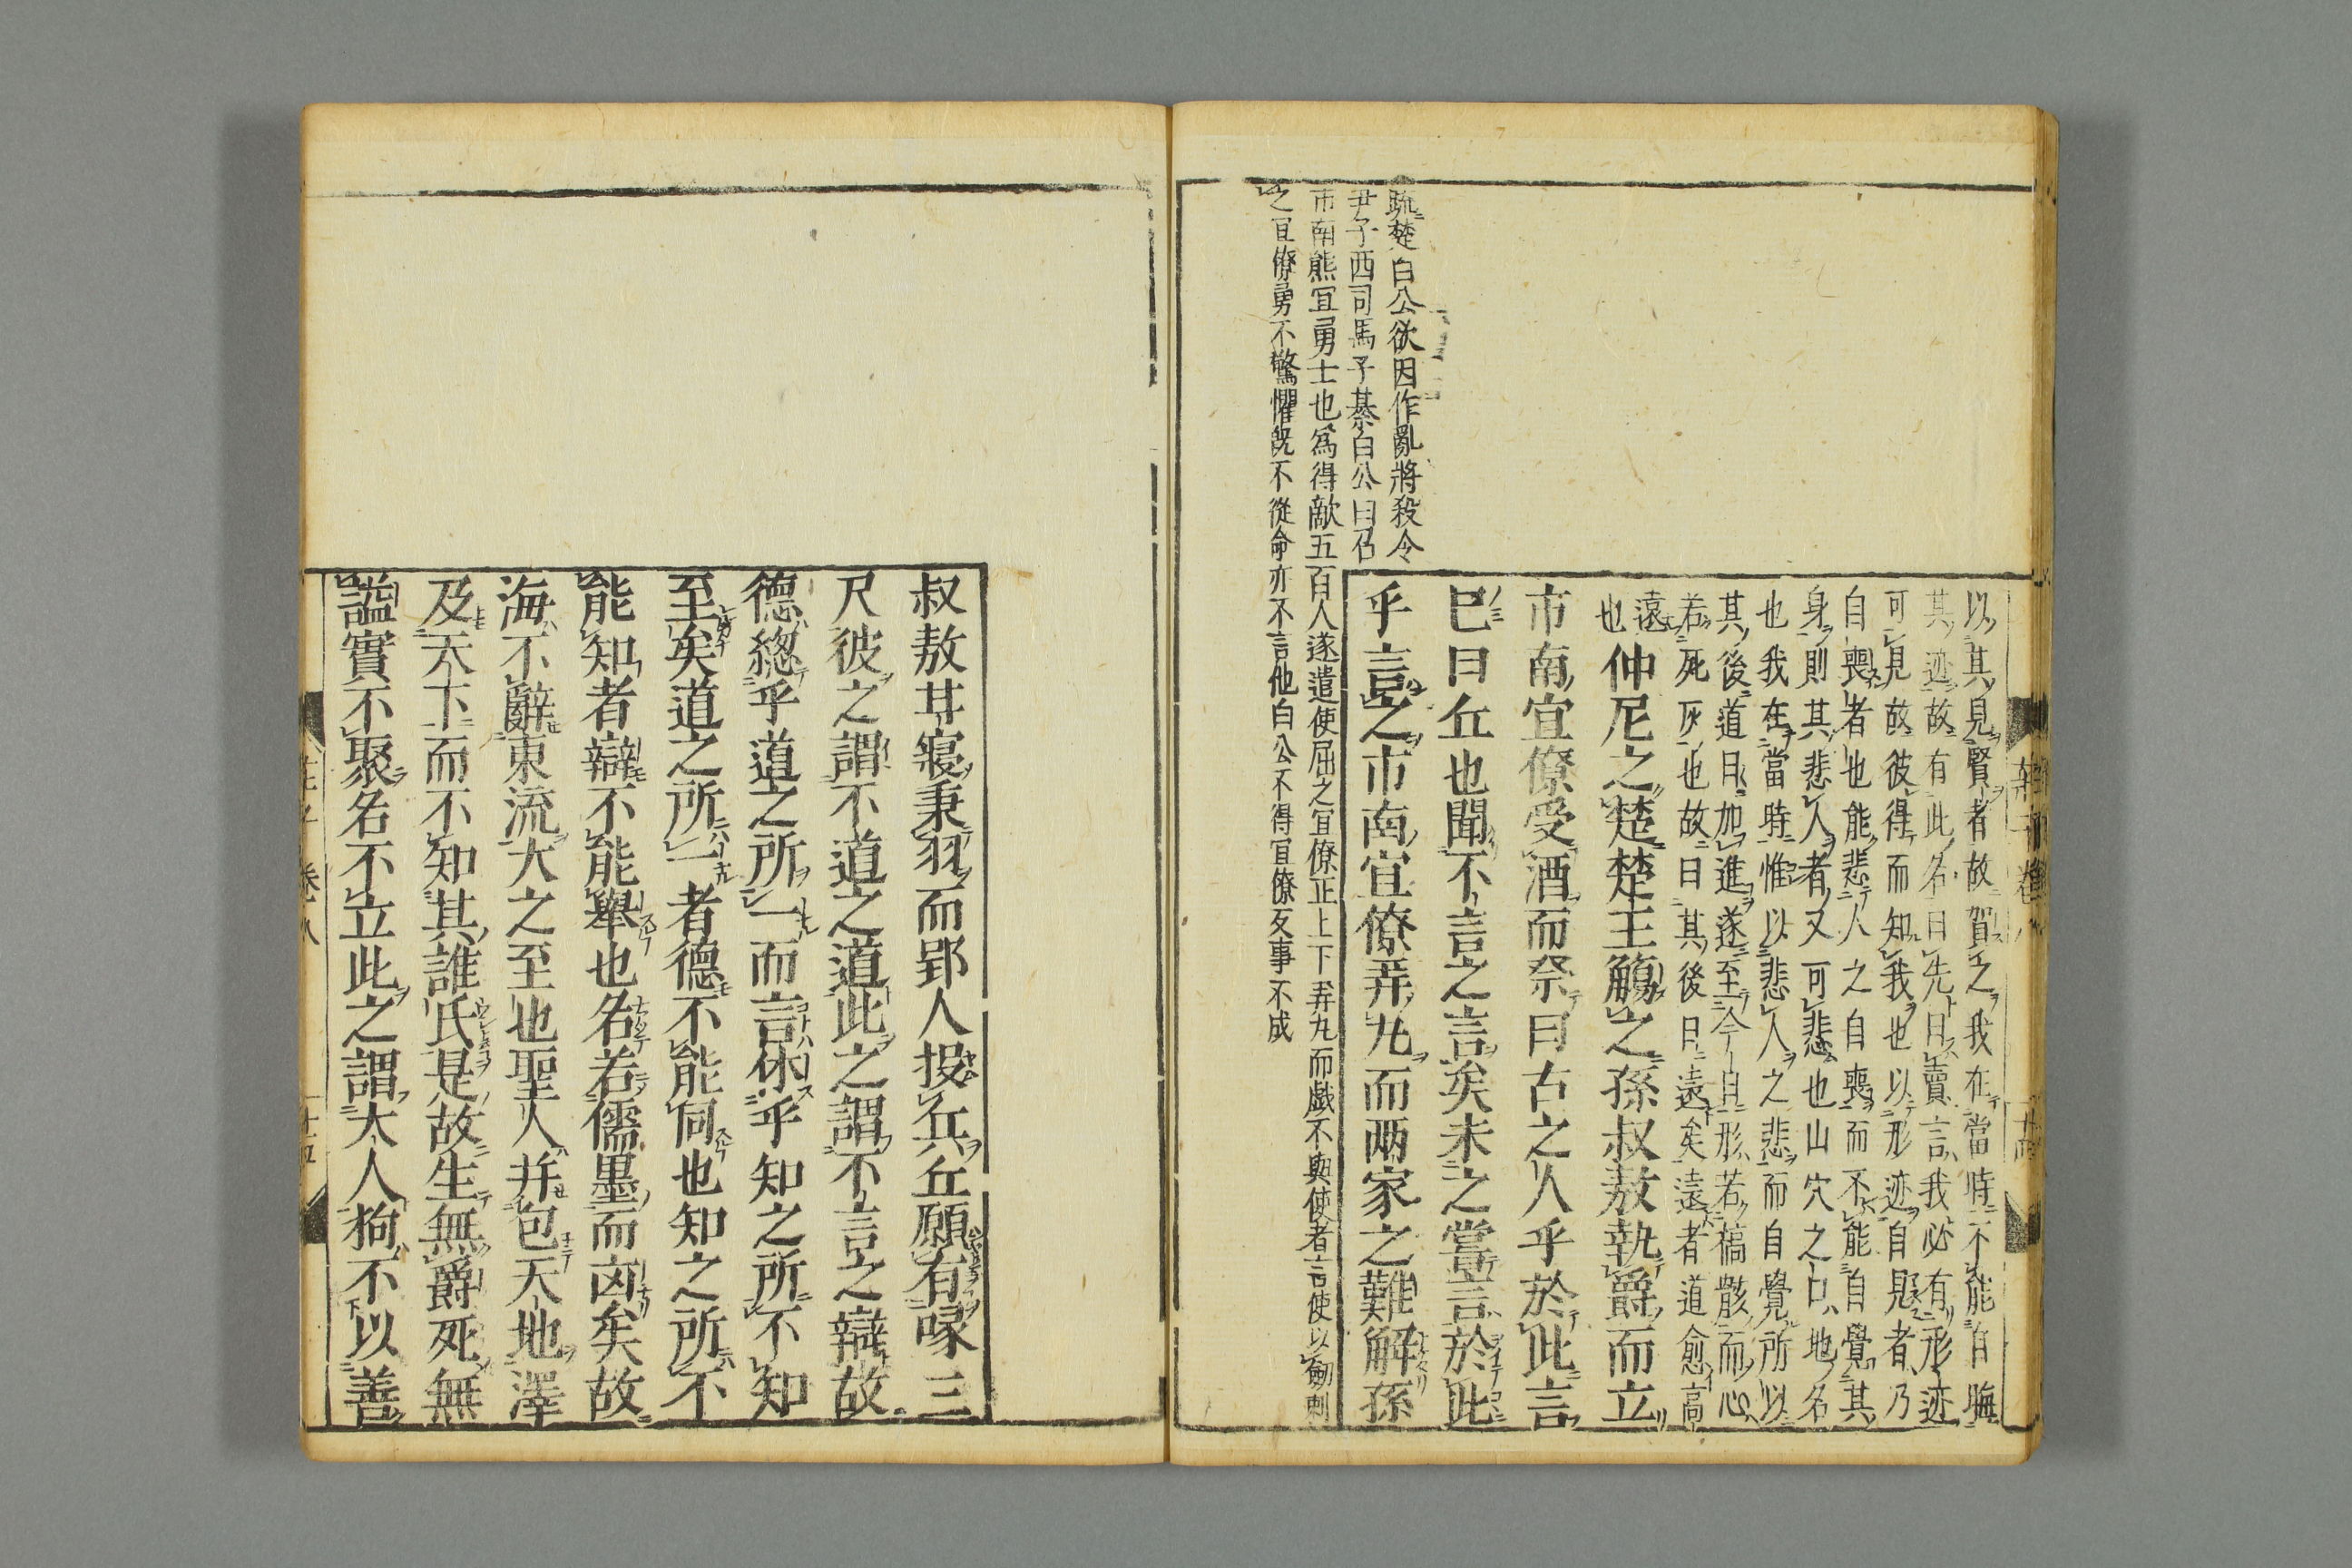 以其見賢者故賀之我在當時不能自晦
其迹故有此名曰先日賣言我必有形迹
可見故彼得而知我也以形迹自見者乃
自喪者也能悲人之自喪而不能自覺其
身則其悲人者又可悲也山穴之口地名
也我在當時惟以悲人之悲而自覺所以
其後道日加進遂至今日形若槁骸而心
若死灰也故曰其後日遠矣遠者道愈高
遠
也仲尼之楚楚王觴之孫叔敖執爵而立
市南宜僚受酒而祭曰古之人乎於此言
已曰丘也聞不言之言矣未之嘗言於此
乎言之市南宜僚弄丸而兩家之難解孫
疏楚白公欲因作亂將殺令
尹子西司馬子綦白公曰召
市南熊宜勇士也爲得敵五百人遂遣使屈之宜僚正上下弄丸而戲不與使者言使以劒刺
之宜僚勇不驚懼旣不從命亦不言他白公不得宜僚反事不成
叔敖甘寢秉羽而郢人投兵丘願有喙三
尺彼之謂不道之道此之謂不言之辯故
德總乎道之所一而言休乎知之所不知
至矣道之所一者德不能同也知之所不
能知者辯不能舉也名若儒墨而凶矣故
海不辭東流大之至也聖人并包天地澤
及天下而不知其誰氏是故生無爵死無
謚實不聚名不立此之謂大人狗不以善
莊子 卷八 二十五